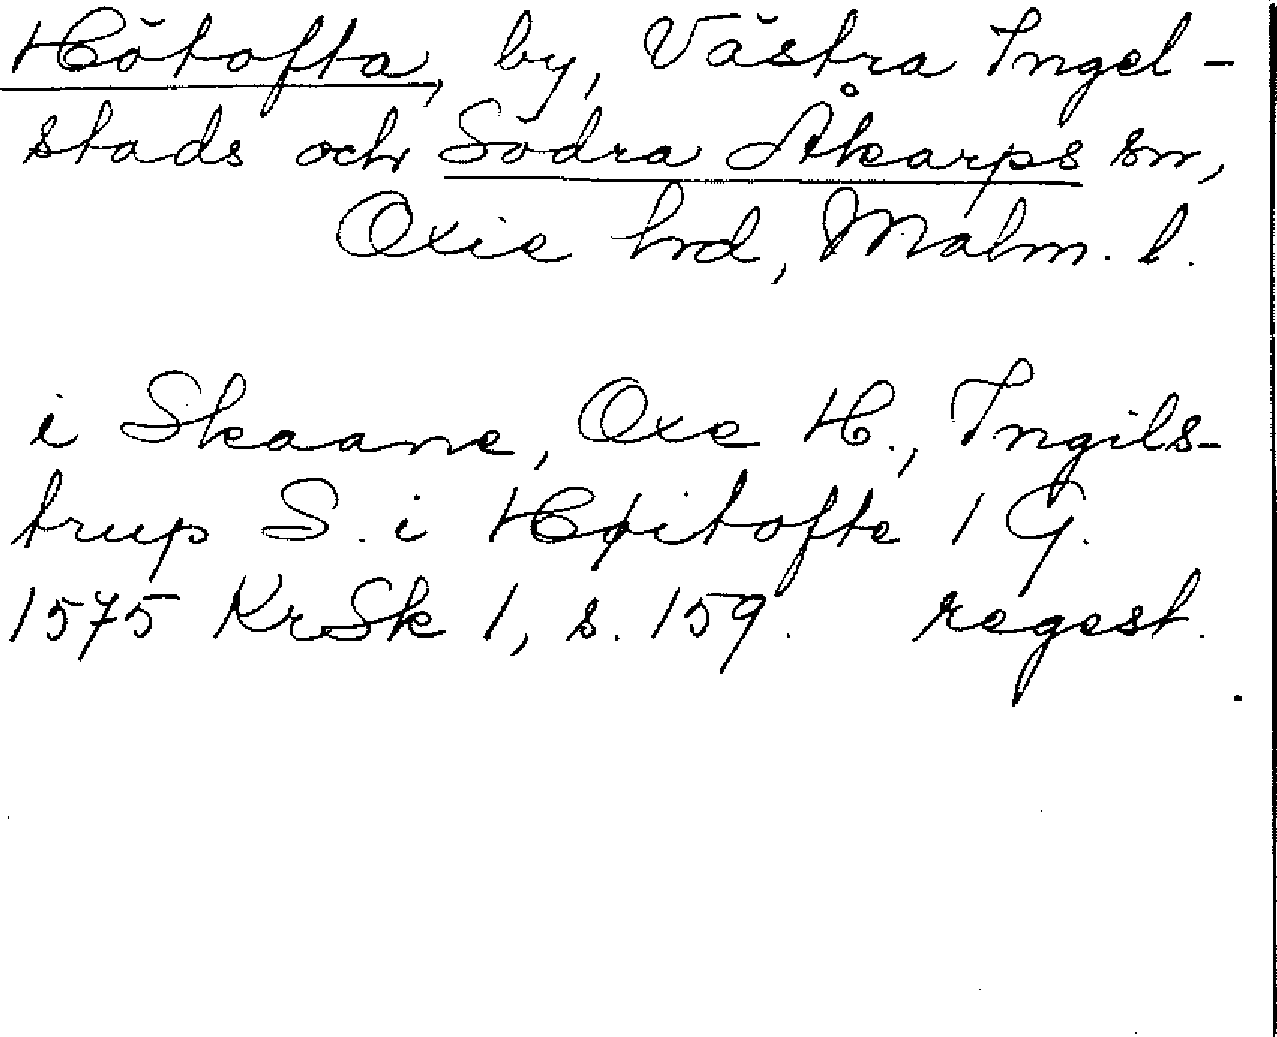 Hötofta, by, Västra Ingel-
stads och Södra Åkarps sn,
Oxie hrd, Malm. l.
i Skaane, Oxe H., Ingils-
trup S. i Høitofte 1 G.
1575 KrSk 1, s. 159. regest.